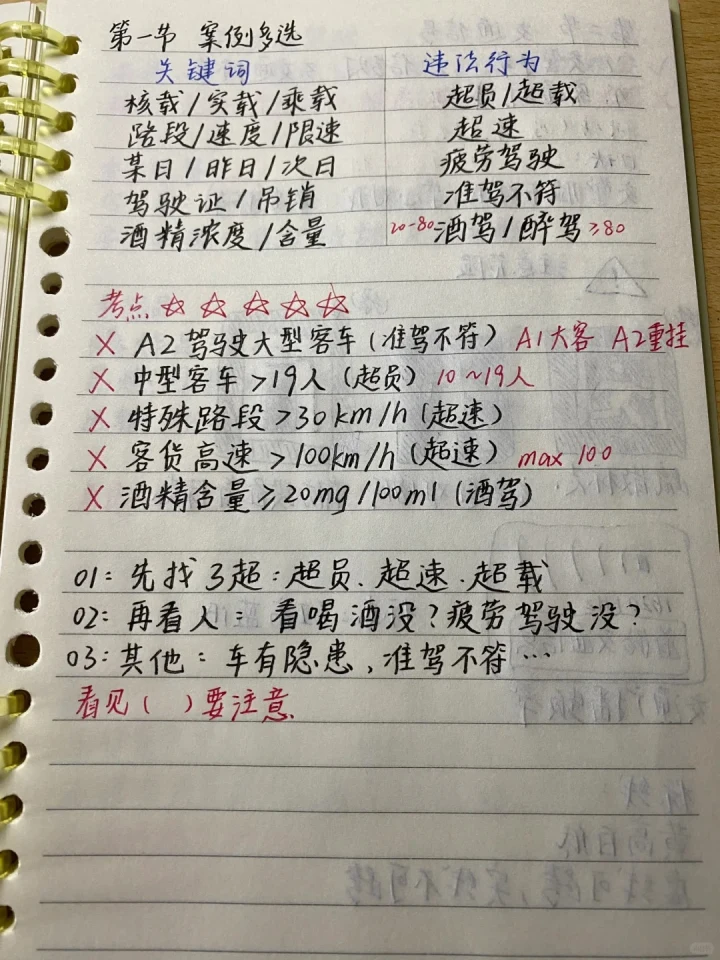 第一节 案例多选
关键词 违法行为
核载/实载/乘载 超员/超载
路段/速度/限速 超速
某日/昨日/次日 疲劳驾驶
驾驶证/吊销 准驾不符
酒精浓度/含量 20-80酒驾/醉驾≥80
考点☆☆☆☆☆
× A2驾驶大型客车(准驾不符) A1大客 A2重挂
× 中型客车>19人(超员) 10~19人
× 特殊路段>30km/h(超速)
× 客货高速>100km/h(超速) max 100
× 酒精含量≥20mg/100ml(酒驾)
01:先找3超:超员、超速、超载
02:再看人:看喝酒没?疲劳驾驶没?
03:其他:车有隐患,准驾不符…
看见( )要注意